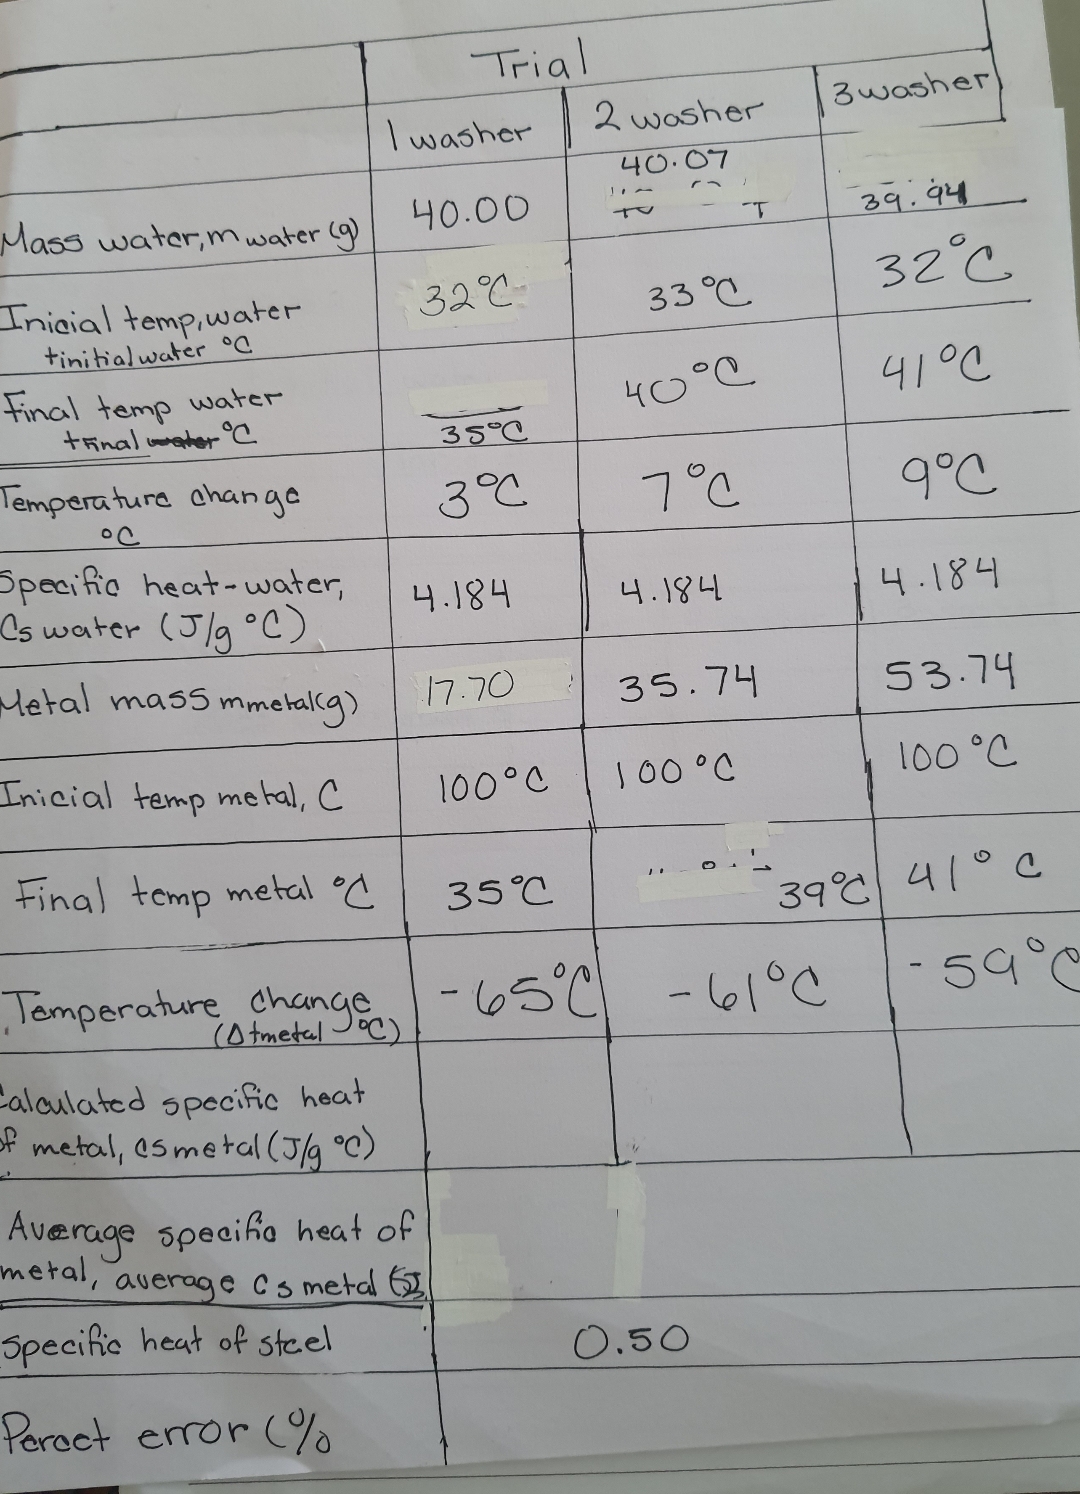 Trial
1 washer 2 washer 3 washer
40.07
Mass water, m water (g) 40.00 39.94
Inicial temp, water 32°C 33°C 32°C
tinitial water °C
Final temp water 40°C 41°C
tfinal water °C 35°C
Temperature change 3°C 7°C 9°C
°C
Specific heat-water, 4.184 4.184 4.184
Cs water (J/g °C)
Metal mass mmetal(g) 17.70 35.74 53.74
Inicial temp metal, C 100°C 100°C 100°C
Final temp metal °C 35°C 39°C 41°C
Temperature change -65°C -61°C -59°C
(Δtmetal °C)
Calculated specific heat
of metal, cs metal (J/g °C)
Average specific heat of
metal, average Cs metal
specific heat of steel 0.50
Percet error (%